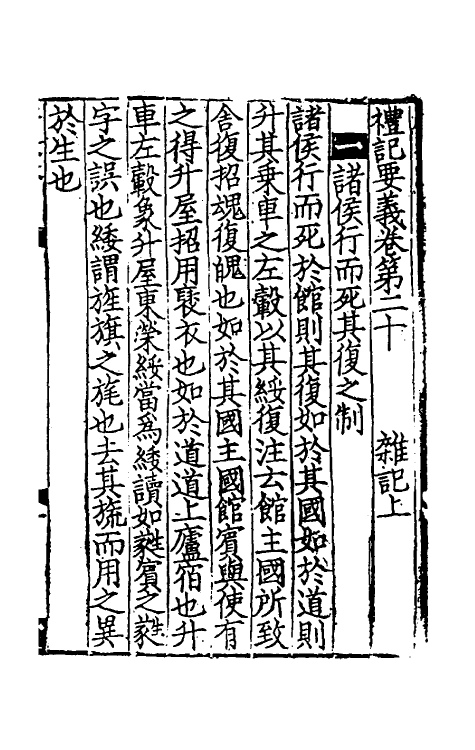 禮記要義卷第二十　　雜記上
一 諸侯行而死其復之制
諸侯行而死於館則其復如於其國如於道則
升其乗車之左轂以其綏復注云館主國所致
舍復招魂復魄也如於其國主國館賓與使有
之得升屋招用襃衣也如於道道上廬宿也升
車左轂象升屋東榮綏當爲緌讀如蕤賓之蕤
字之誤也緌謂旌旗之旄也去其旒而用之異
於生也